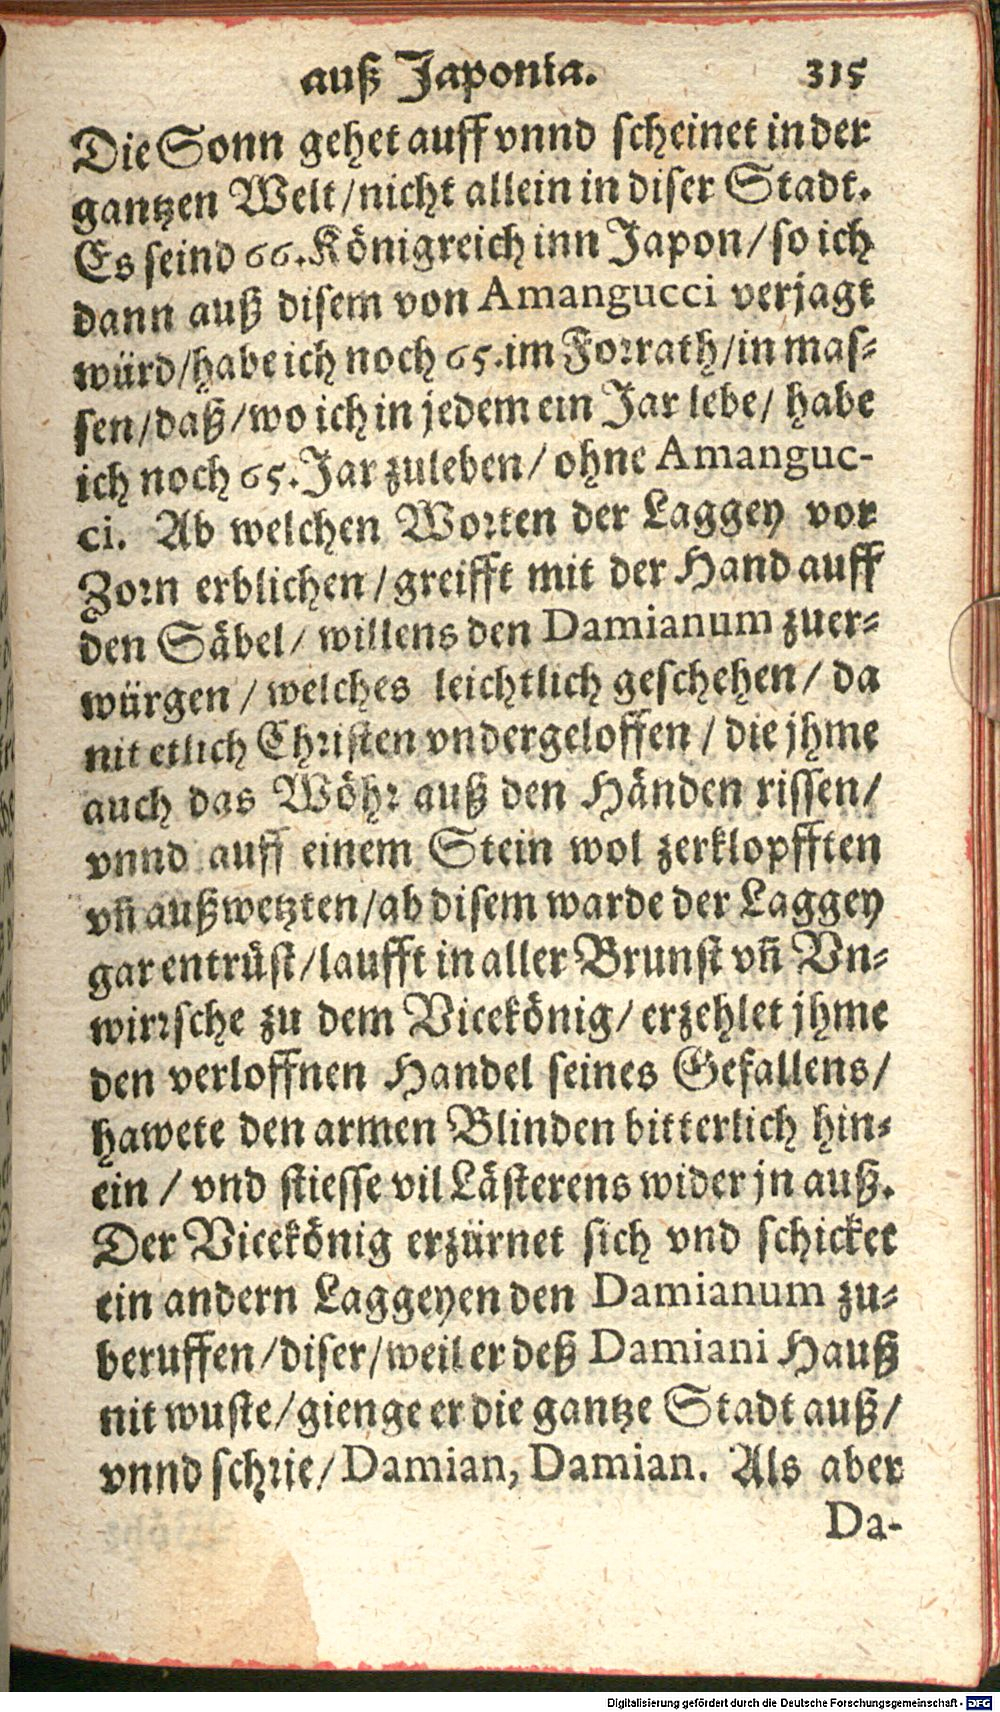 auß Japonia. 315
Die Sonn gehet auff vnnd scheinet in der
gantzen Welt/nicht allein in diser Stadt.
Es seind 66. Königreich inn Japon/so ich
dann auß disem von Amangucci verjagt
würd/habe ich noch 65.im Forrath/in mas-
sen/daß/wo ich in jedem ein Jar lebe/ habe
ich noch 65. Jar zuleben/ ohne Amanguc-
ci. Ab welchen Worten der Laggey vor
Zorn erblichen/greifft mit der Hand auff
den Säbel/ willens den Damianum zuer-
würgen/ welches leichtlich geschehen/ da
nit etlich Christen vndergeloffen/ die jhme
auch das Wöhr auß den Händen rissen/
vnnd auff einem Stein wol zerklopfften
vñ außwetzten/ab disem warde der Laggey
gar entrüst/laufft in aller Brunst vñ Vn-
wirrsche zu dem Vicekönig/ erzehlet jhme
den verloffnen Handel seines Gefallens/
hawete den armen Blinden bitterlich hin-
ein/ vnd stiesse vil Lästerens wider jn auß.
Der Vicekönig erzürnet sich vnd schicket
ein andern Laggeyen den Damianum zu-
beruffen/diser/weil er deß Damiani Hauß
nit wuste/gienge er die gantze Stadt auß/
vnnd schrie/ Damian, Damian. Als aber
Da-
Digitalisierung gefördert durch die Deutsche Forschungsgemeinschaft - DFG